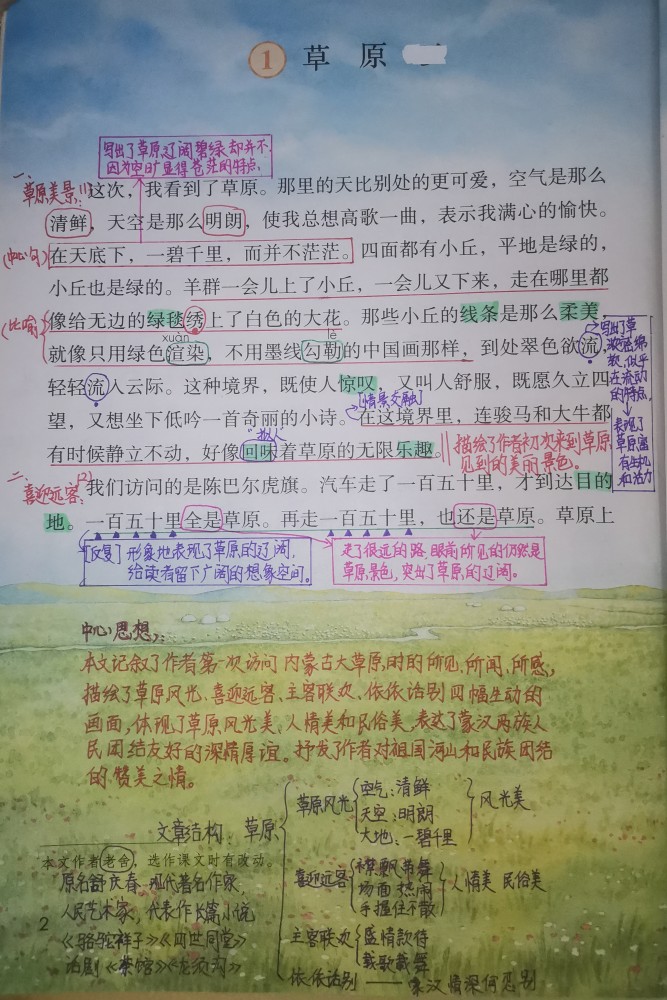 1 草原
写出了草原辽阔碧绿却并不
因为空旷显得苍茫的特点。
一、
草原美景
这次，我看到了草原。那里的天比别处的更可爱，空气是那么
清鲜，天空是那么明朗，使我总想高歌一曲，表示我满心的愉快。
(中心句)
在天底下，一碧千里，而并不茫茫。四面都有小丘，平地是绿的，
小丘也是绿的。羊群一会儿上了小丘，一会儿又下来，走在哪里都
(比喻)
像给无边的绿毯绣上了白色的大花。那些小丘的线条是那么柔美，
xuàn
lè
就像只用绿色渲染，不用墨线勾勒的中国画那样，到处翠色欲流，
轻轻流入云际。这种境界，既使人惊叹，又叫人舒服，既愿久立四
[情景交融]
望，又想坐下低吟一首奇丽的小诗。在这境界里，连骏马和大牛都
拟人
有时候静立不动，好像回味着草原的无限乐趣。
描绘了作者初次来到草原
见到的美丽景色。
写出了草
原
似乎
在流动
的特点。
表现了
草原富
有生机
和活力
二、
喜迎远客
(2)
我们访问的是陈巴尔虎旗。汽车走了一百五十里，才到达目的
地。一百五十里全是草原。再走一百五十里，也还是草原。草原上
[反复]形象地表现了草原的辽阔，
给读者留下广阔的想象空间。
走了很远的路，眼前所见的仍然是
草原景色，突出了草原的辽阔。
中心思想：
本文记叙了作者第一次访问内蒙古大草原时的所见、所闻、所感，
描绘了草原风光、喜迎远客、主客联欢、依依话别四幅生动的
画面，体现了草原风光美、人情美和民俗美，表达了蒙汉两族人
民团结友好的深情厚谊。抒发了作者对祖国河山和民族团结
的赞美之情。
文章结构：草原
草原风光
空气：清鲜
天空：明朗
大地：一碧千里
风光美
喜迎远客
襟飘带舞
场面热闹
手握住不散
人情美 民俗美
主客联欢
盛情款待
载歌载舞
依依话别——蒙汉情深何忍别
本文作者老舍，选作课文时有改动。
原名舒庆春，现代著名作家，
人民艺术家，代表作长篇小说
《骆驼祥子》《四世同堂》
话剧《茶馆》《龙须沟》
2